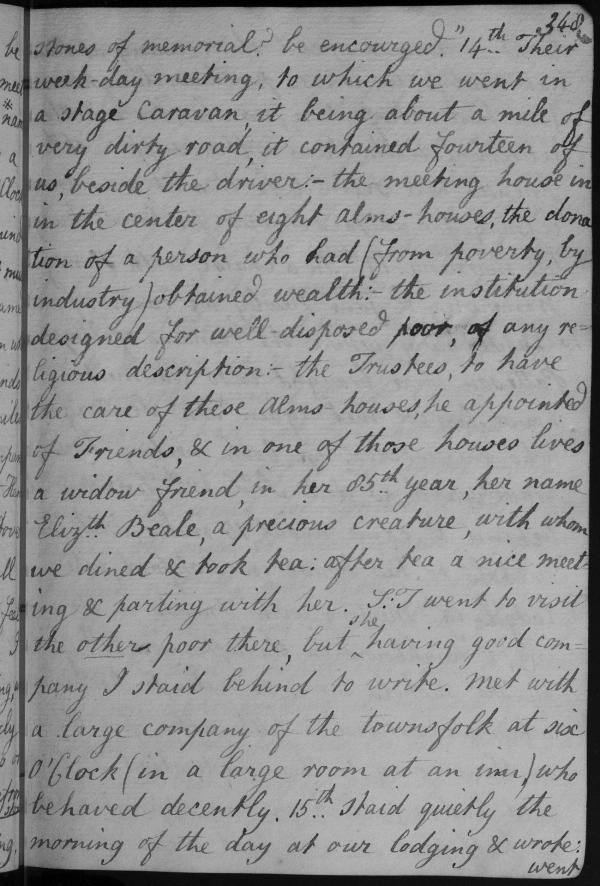 348
stones of memorial? be encourged." 14th.. Their
week-day meeting, to which we went in
a stage Caravan, it being about a mile of
very dirty road, it contained fourteen of
us, beside the driver:- the meeting house in
in the center of eight alms-houses, the dona
tion of a person who had (from poverty, by
industry) obtained wealth:- the institution
designed for well-disposed poor, of any re=
ligious description:- the Trustees, to have
the care of these Alms-houses, he appointed
of Friends, & in one of those houses lives
a widow friend, in her 85th.. year, her name
Elizth.. Beale, a precious creature, with whom
we dined & took tea: after tea a nice meet-
ing & parting with her. S:T went to visit
the other poor there, but she having good com=
pany I staid behind to write. Met with
a large company of the townsfolk at six
O'Clock (in a large room at an inn) who
behaved decently. 15th.. staid quietly the
morning of the day at our lodging & wrote:
went